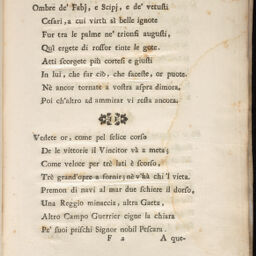 Ombre de' Fabj, e Scipj, e de' vetusti
Cesari, a cui virtù al belle ignote
Fur tra le palme ne' trionfi augusti,
Qui ergete di rossor tinte le gote.
Atti scorgete più cortesi e giusti
In lui, che fur ciò, che faceste, or puote.
Nè ancor tornate a vostra aspra dimora,
Poi ch'altro ad ammirar vi resta ancora.
Vedete or, come pel felice corso
De le vittorie il Vincitor và a meta;
Come veloce per trè lati è scorso,
Trè grand'opre a fornir; nè v'hà chi'l vieta.
Premon di navi al mar due schiere il dorso,
Una Reggio minaccia, altra Gaeta,
Altro Campo Guerrier cigne la chiara
Pe' suoi prischi Signor nobil Pescara.
F 2 A que-